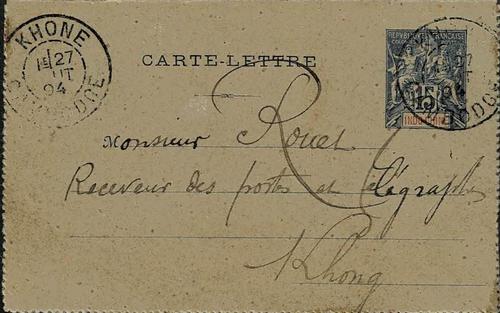 KHONE
1E 27
UT
94
CARTE-LETTRE
REPUBLIQUE FRANCAISE
15
INDO-CHINE
27
94
Monsieur Rouet
Receveur des postes et télégraphes
Khong